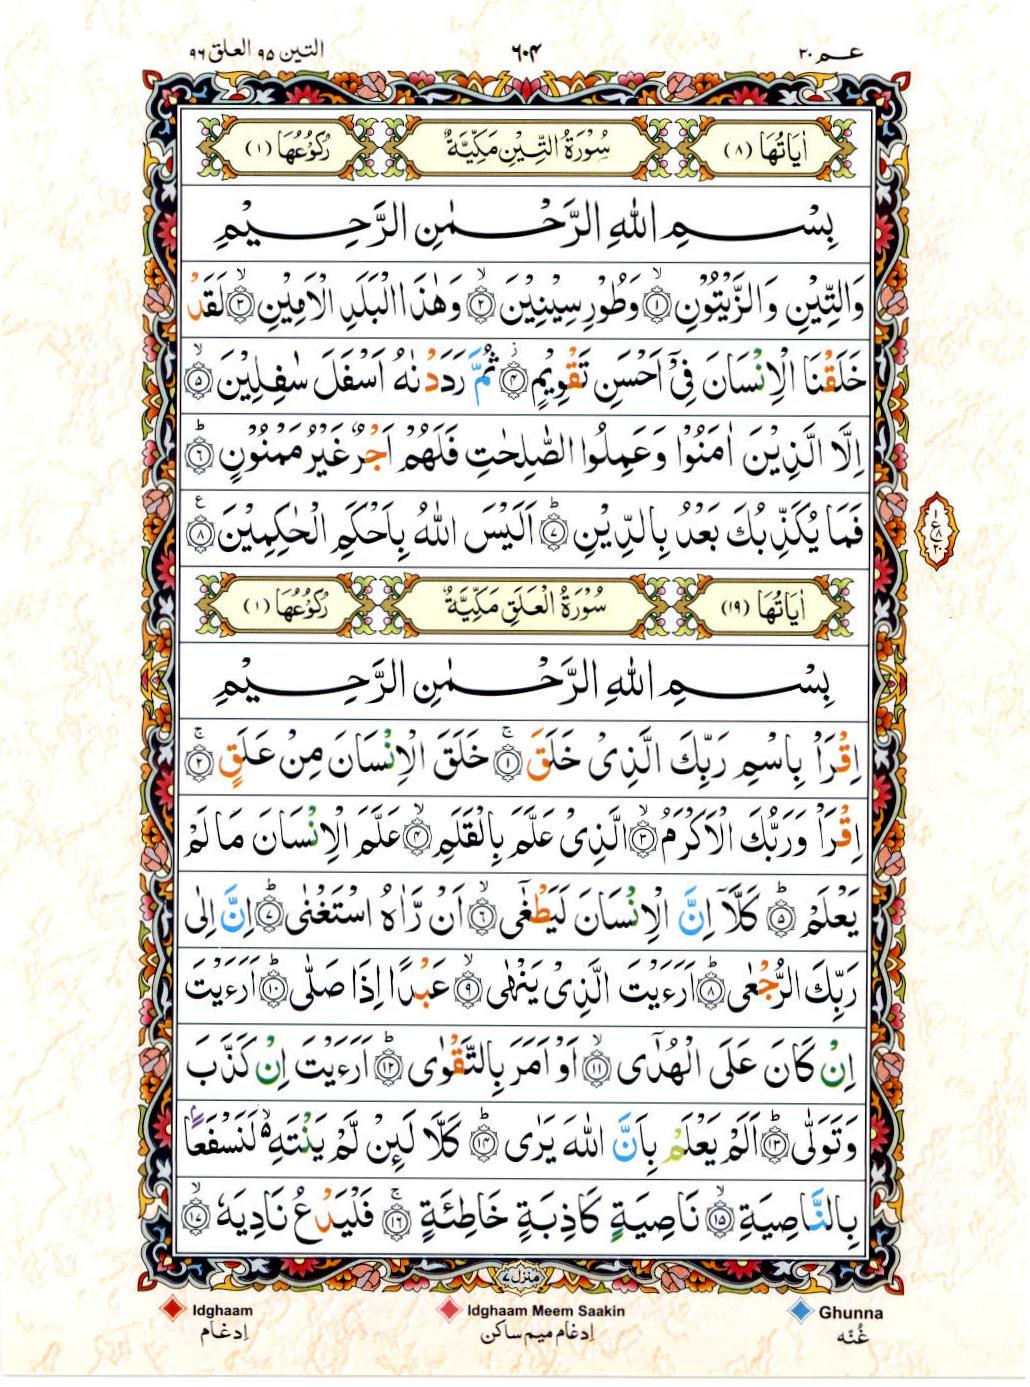 عـم ٣٠ ٦٠٤ التين ٩٥ العلق ٩٦
اٰيَاتُهَا (٨) سُوْرَةُ التِّيْنِ مَكِّيَّةٌ رُكُوْعُهَا (١)
بِسْمِ اللهِ الرَّحْمٰنِ الرَّحِيْمِ
وَالتِّيْنِ وَالزَّيْتُوْنِ ۙ﴿١﴾ وَطُوْرِ سِيْنِيْنَ ۙ﴿٢﴾ وَهٰذَا الْبَلَدِ الْاَمِيْنِ ۙ﴿٣﴾ لَقَدْ
خَلَقْنَا الْاِنْسَانَ فِىْٓ اَحْسَنِ تَقْوِيْمٍ ؗ﴿٤﴾ ثُمَّ رَدَدْنٰهُ اَسْفَلَ سٰفِلِيْنَ ۙ﴿٥﴾
اِلَّا الَّذِيْنَ اٰمَنُوْا وَعَمِلُوا الصّٰلِحٰتِ فَلَهُمْ اَجْرٌ غَيْرُ مَمْنُوْنٍ ؕ﴿٦﴾
فَمَا يُكَذِّبُكَ بَعْدُ بِالدِّيْنِ ؕ﴿٧﴾ اَلَيْسَ اللهُ بِاَحْكَمِ الْحٰكِمِيْنَ ﴿٨﴾ ع
١
ع
٨
٢٠
اٰيَاتُهَا (١٩) سُوْرَةُ الْعَلَقِ مَكِّيَّةٌ رُكُوْعُهَا (١)
بِسْمِ اللهِ الرَّحْمٰنِ الرَّحِيْمِ
اِقْرَاْ بِاسْمِ رَبِّكَ الَّذِىْ خَلَقَ ۚ﴿١﴾ خَلَقَ الْاِنْسَانَ مِنْ عَلَقٍ ۚ﴿٢﴾
اِقْرَاْ وَرَبُّكَ الْاَكْرَمُ ۙ﴿٣﴾ الَّذِىْ عَلَّمَ بِالْقَلَمِ ۙ﴿٤﴾ عَلَّمَ الْاِنْسَانَ مَا لَمْ
يَعْلَمْ ؕ﴿٥﴾ كَلَّاۤ اِنَّ الْاِنْسَانَ لَيَطْغٰٓى ۙ﴿٦﴾ اَنْ رَّاٰهُ اسْتَغْنٰى ؕ﴿٧﴾ اِنَّ اِلٰى
رَبِّكَ الرُّجْعٰى ؕ﴿٨﴾ اَرَءَيْتَ الَّذِىْ يَنْهٰى ۙ﴿٩﴾ عَبْدًا اِذَا صَلّٰى ؕ﴿١٠﴾ اَرَءَيْتَ
اِنْ كَانَ عَلَى الْهُدٰٓى ۙ﴿١١﴾ اَوْ اَمَرَ بِالتَّقْوٰى ؕ﴿١٢﴾ اَرَءَيْتَ اِنْ كَذَّبَ
وَتَوَلّٰى ؕ﴿١٣﴾ اَلَمْ يَعْلَمْ بِاَنَّ اللهَ يَرٰى ؕ﴿١٤﴾ كَلَّا لَئِنْ لَّمْ يَنْتَهِ ۙ۬ لَنَسْفَعًۢا
بِالنَّاصِيَةِ ۙ﴿١٥﴾ نَاصِيَةٍ كَاذِبَةٍ خَاطِئَةٍ ۚ﴿١٦﴾ فَلْيَدْعُ نَادِيَهٗ ۙ﴿١٧﴾
منزل ٧
Idghaam Idghaam Meem Saakin Ghunna
اِدغام اِدغام میم ساکن غُنّه